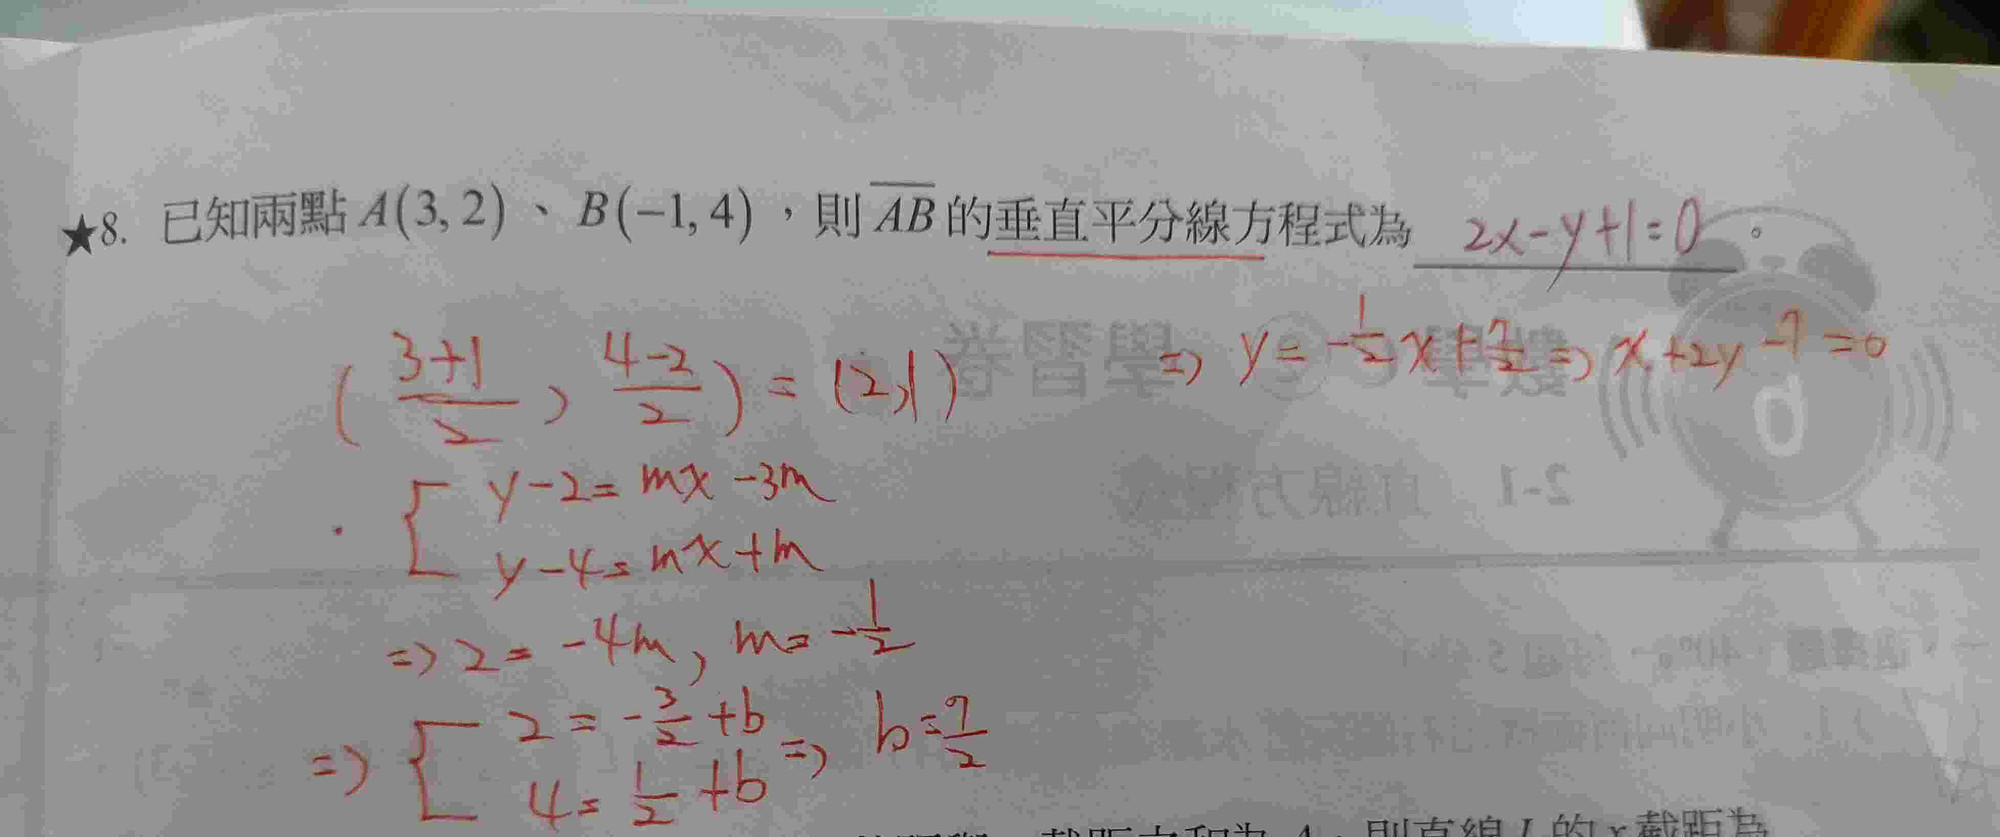 ★8. 已知兩點 A(3, 2)、B(−1, 4),則 AB 的垂直平分線方程式為 2x−y+1=0。
(3+1/2, 4−2/2) = (2,1)
⇒ y = −1/2 x + 7/2 ⇒ x+2y−7=0
{ y−2 = mx−3m
y−4 = mx+m
⇒ 2 = −4m, m = −1/2
⇒ { 2 = −3/2 + b
4 = 1/2 + b ⇒ b = 7/2
數學 學習卷
2-1 直線方程式
則直線 L 的 x 截距為